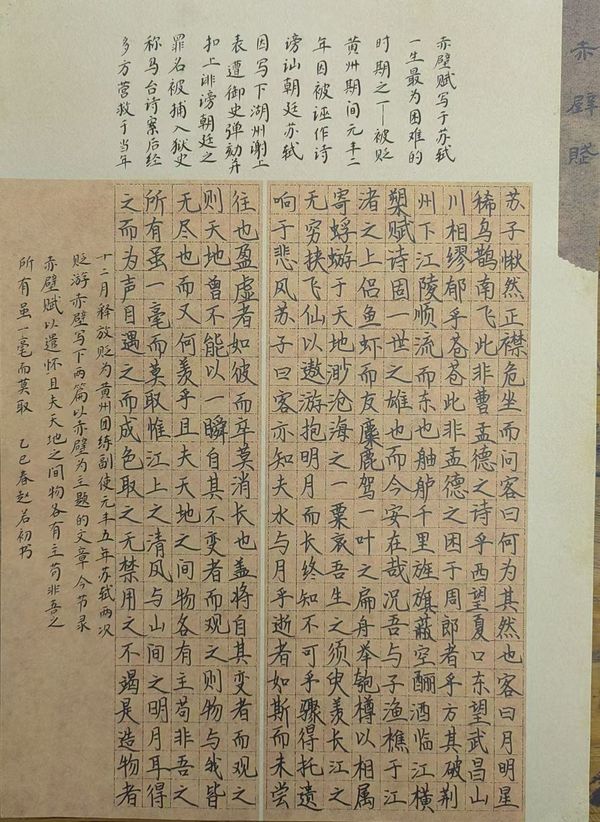 赤壁賦
赤壁赋写于苏轼
一生最为困难的
时期之一—被贬
黄州期间元丰二
年因被诬作诗
谤讪朝廷苏轼
因写下湖州谢上
表遭御史弹劾并
扣上诽谤朝廷之
罪名被捕入狱史
称乌台诗案后经
多方营救于当年
苏子愀然正襟危坐而问客曰何为其然也客曰月明星
稀乌鹊南飞此非曹孟德之诗乎西望夏口东望武昌山
川相缪郁乎苍苍此非孟德之困于周郎者乎方其破荆
州下江陵顺流而东也舳舻千里旌旗蔽空酾酒临江横
槊赋诗固一世之雄也而今安在哉况吾与子渔樵于江
渚之上侣鱼虾而友麋鹿驾一叶之扁舟举匏樽以相属
寄蜉蝣于天地渺沧海之一粟哀吾生之须臾羡长江之
无穷挟飞仙以遨游抱明月而长终知不可乎骤得托遗
响于悲风苏子曰客亦知夫水与月乎逝者如斯而未尝
往也盈虚者如彼而卒莫消长也盖将自其变者而观之
则天地曾不能以一瞬自其不变者而观之则物与我皆
无尽也而又何羡乎且夫天地之间物各有主苟非吾之
所有虽一毫而莫取惟江上之清风与山间之明月耳得
之而为声目遇之而成色取之无禁用之不竭是造物者
十二月释放贬为黄州团练副使元丰五年苏轼两次
贬游赤壁写下两篇以赤壁为主题的文章今节录
赤壁赋以遣怀且夫天地之间物各有主苟非吾之
所有虽一毫而莫取 乙巳春赵若初书